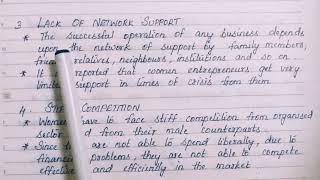 3 LACK OF NETWORK SUPPORT
* The successful operation of any business depends
upon the network of support by family members,
relatives, neighbours, institutions and so on
* It reported that women entrepreneurs get very
support in times of crisis from them
4 COMPETITION
* have to face stiff competition from organised
sector from their male counterparts
* Since are not able to spend liberally, due to
problems, they are not able to compete
and efficiently in the market